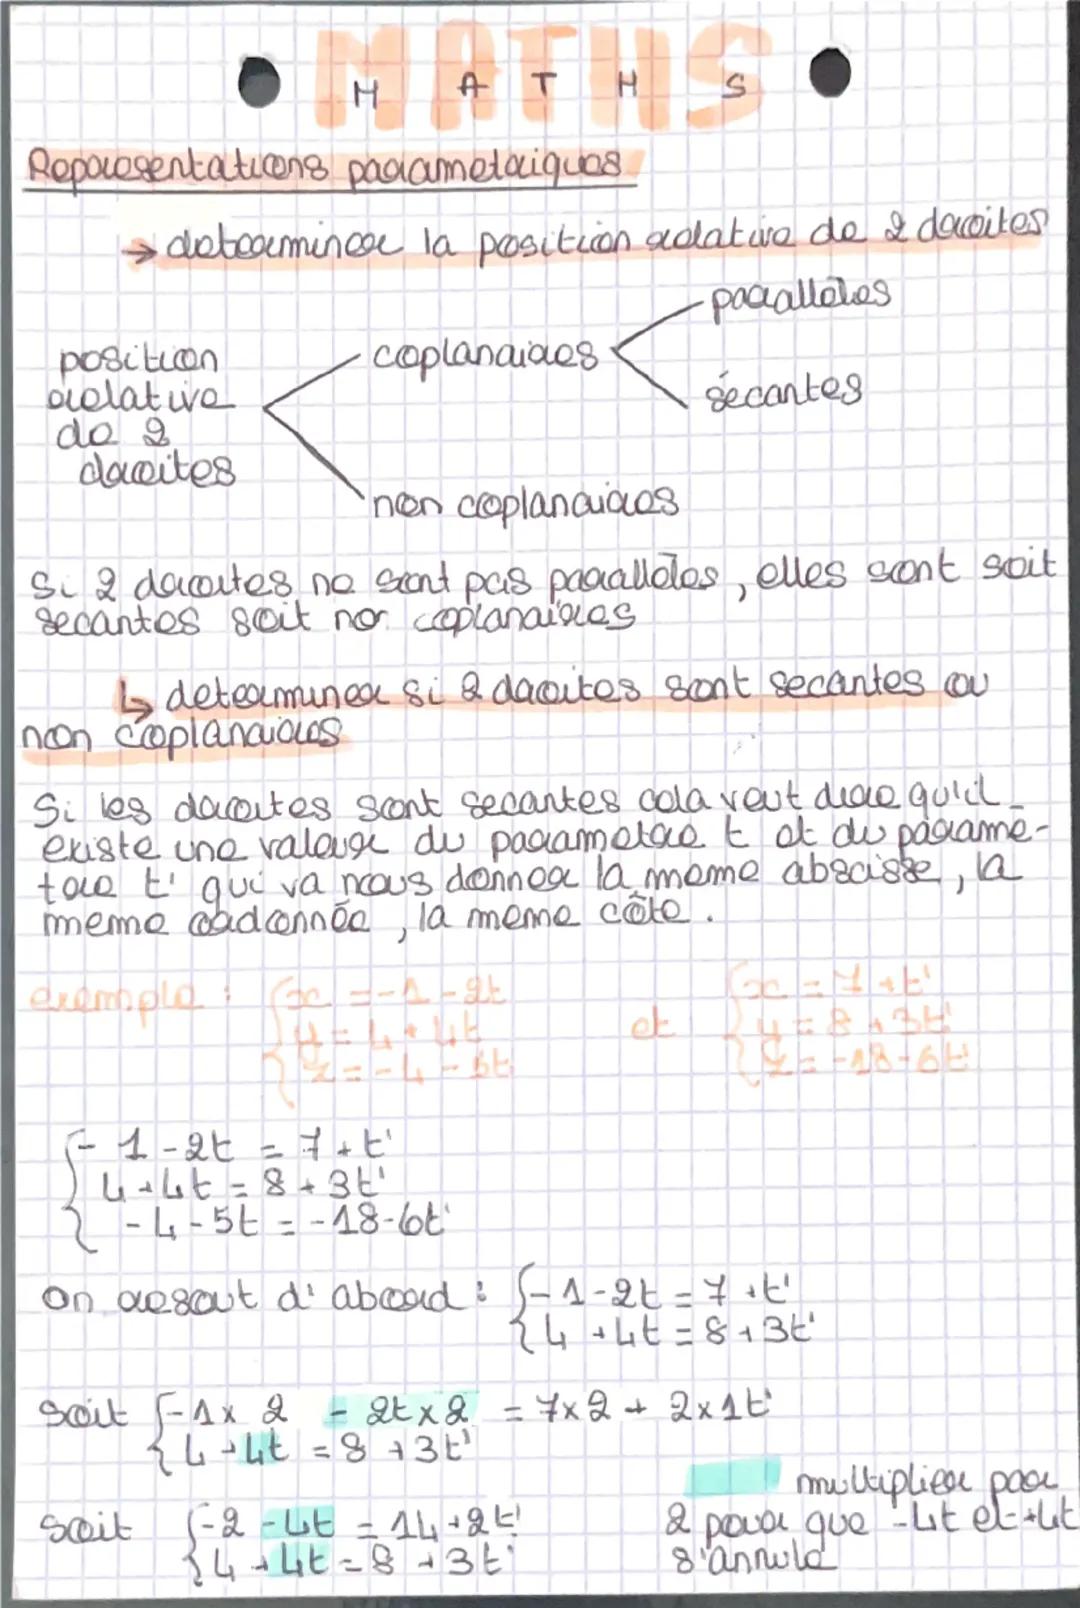 MATHS
M A T H S
Representations parametriques
→ determiner la position relative de 2 droites
position relative de 2 droites
coplanaires
parallèles
sécantes
non coplanaires
Si 2 droites ne sont pas parallèles, elles sont soit
secantes soit non coplanaires
↳ determiner si 2 droites sont secantes ou
non coplanaires
Si les droites sont secantes cela veut dire qu'il
existe une valeur du parametre t et du parame-
tre t' qui va nous donner la meme abscisse, la
meme ordonnée, la meme côte.
exemple : { x = -1 - 2t et { x = 7 + t'
y = 4 + 4t y = 8 + 3t'
z = -4 - 5t z = -18 - 6t'
{ - 1 - 2t = 7 + t'
4 + 4t = 8 + 3t'
- 4 - 5t = - 18 - 6t'
On resout d'abord : { - 1 - 2t = 7 + t'
4 + 4t = 8 + 3t'
Soit { -1 x 2 - 2t x 2 = 7 x 2 + 2 x 1t'
4 + 4t = 8 + 3t'
multiplier par
2 pour que -4t et +4t
s'annule
Soit { -2 - 4t = 14 + 2t'
4 + 4t = 8 + 3t'